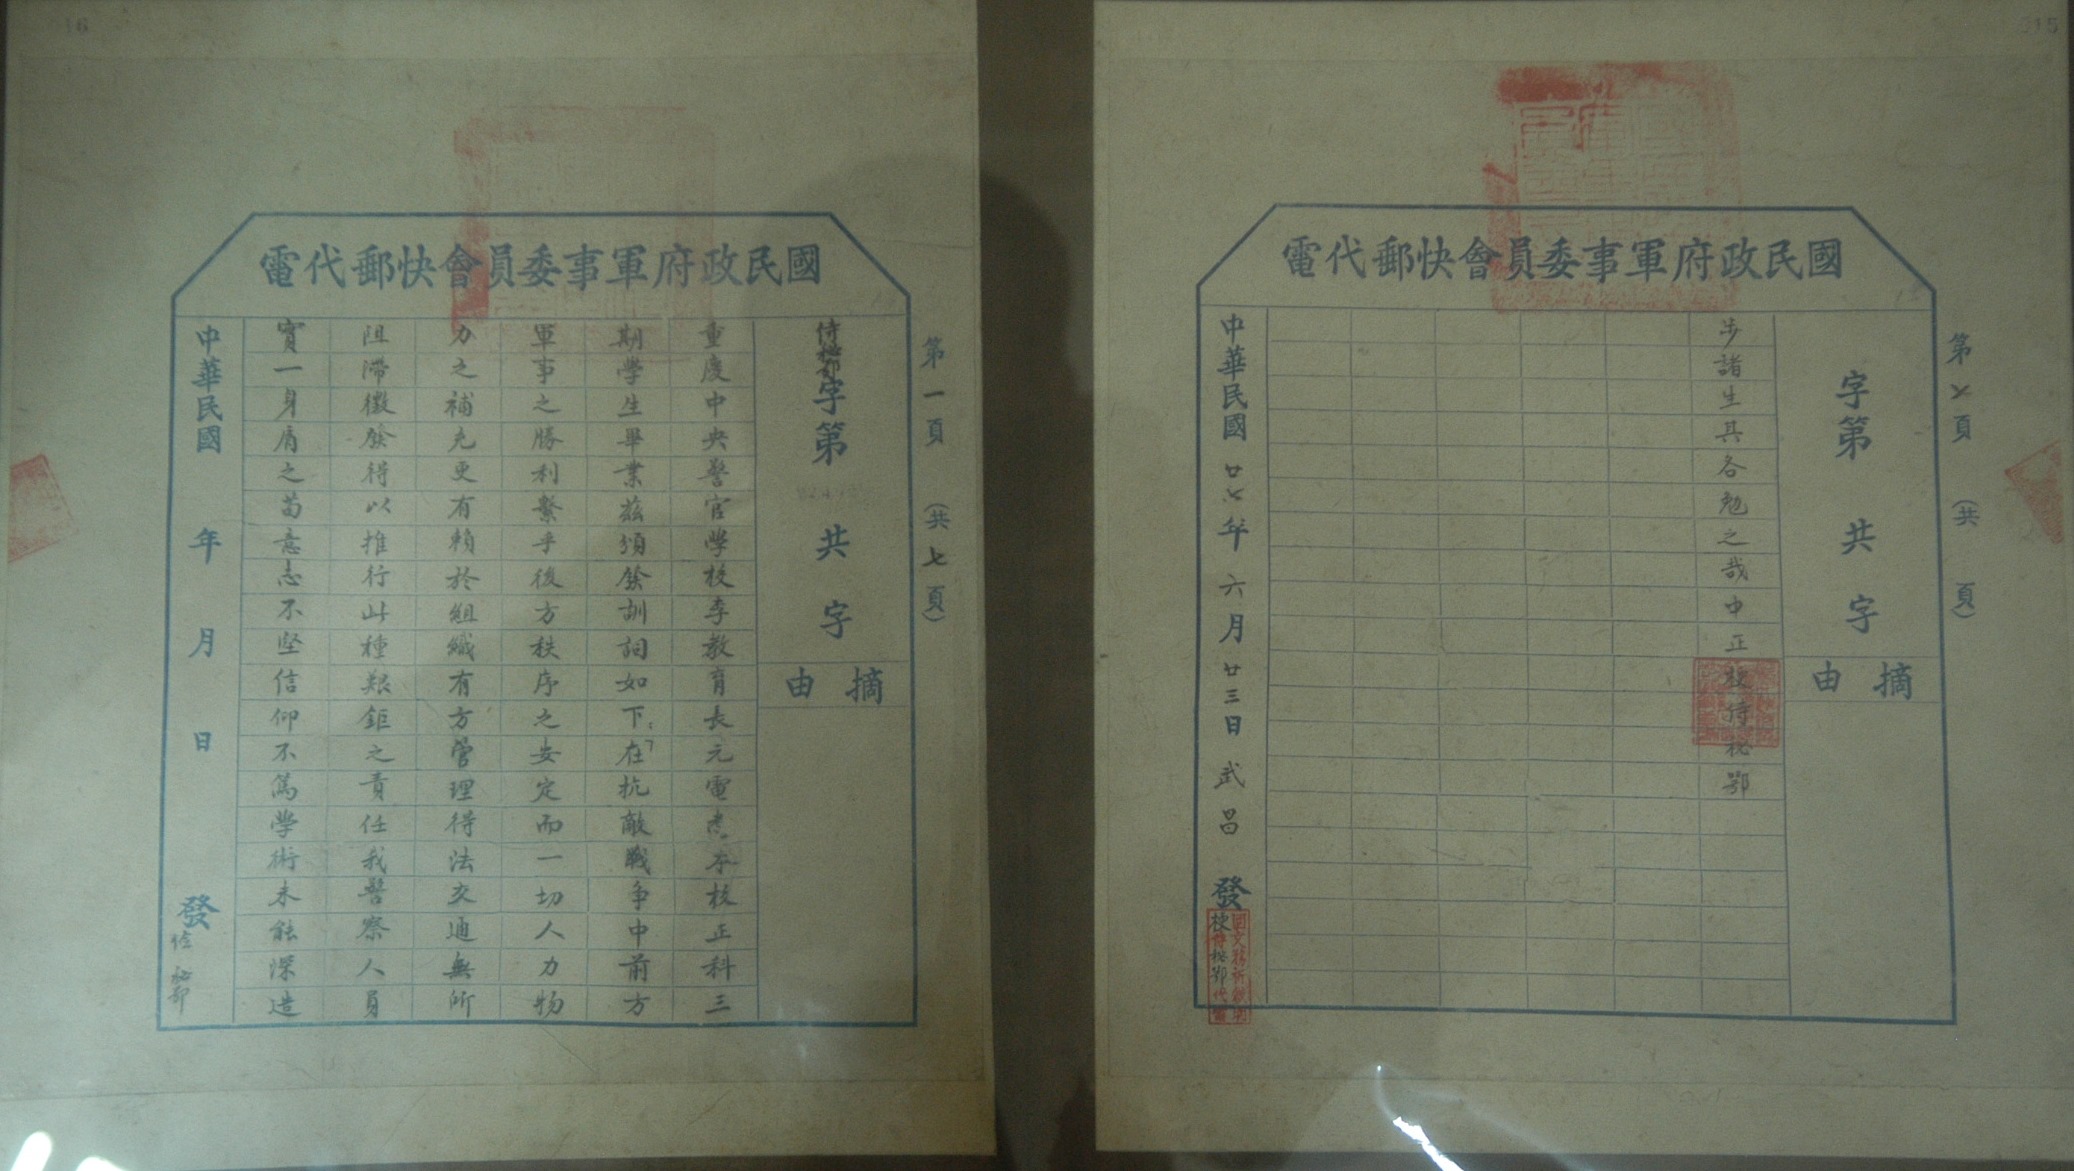 國民政府軍事委員會快郵代電
第一頁(共七頁)
侍秘鄂字第 共 字
摘由
重慶中央警官學校李教育長元電悉本校正科三
期學生畢業茲頒發訓詞如下:「在抗敵戰爭中前方
軍事之勝利繫乎後方秩序之安定而一切人力物
力之補充更有賴於組織有方管理得法交通無所
阻滯徵發得以推行此種艱鉅之責任我警察人員
實一身肩之苟意志不堅信仰不篤學術未能深造
中華民國 年 月 日 發
侍秘鄂
016
國民政府軍事委員會快郵代電
第七頁(共 頁)
字第 共 字
摘由
步諸生其各勉之哉中正 侍秘鄂
中華民國廿七年六月廿三日武昌發
侍秘鄂代電
015